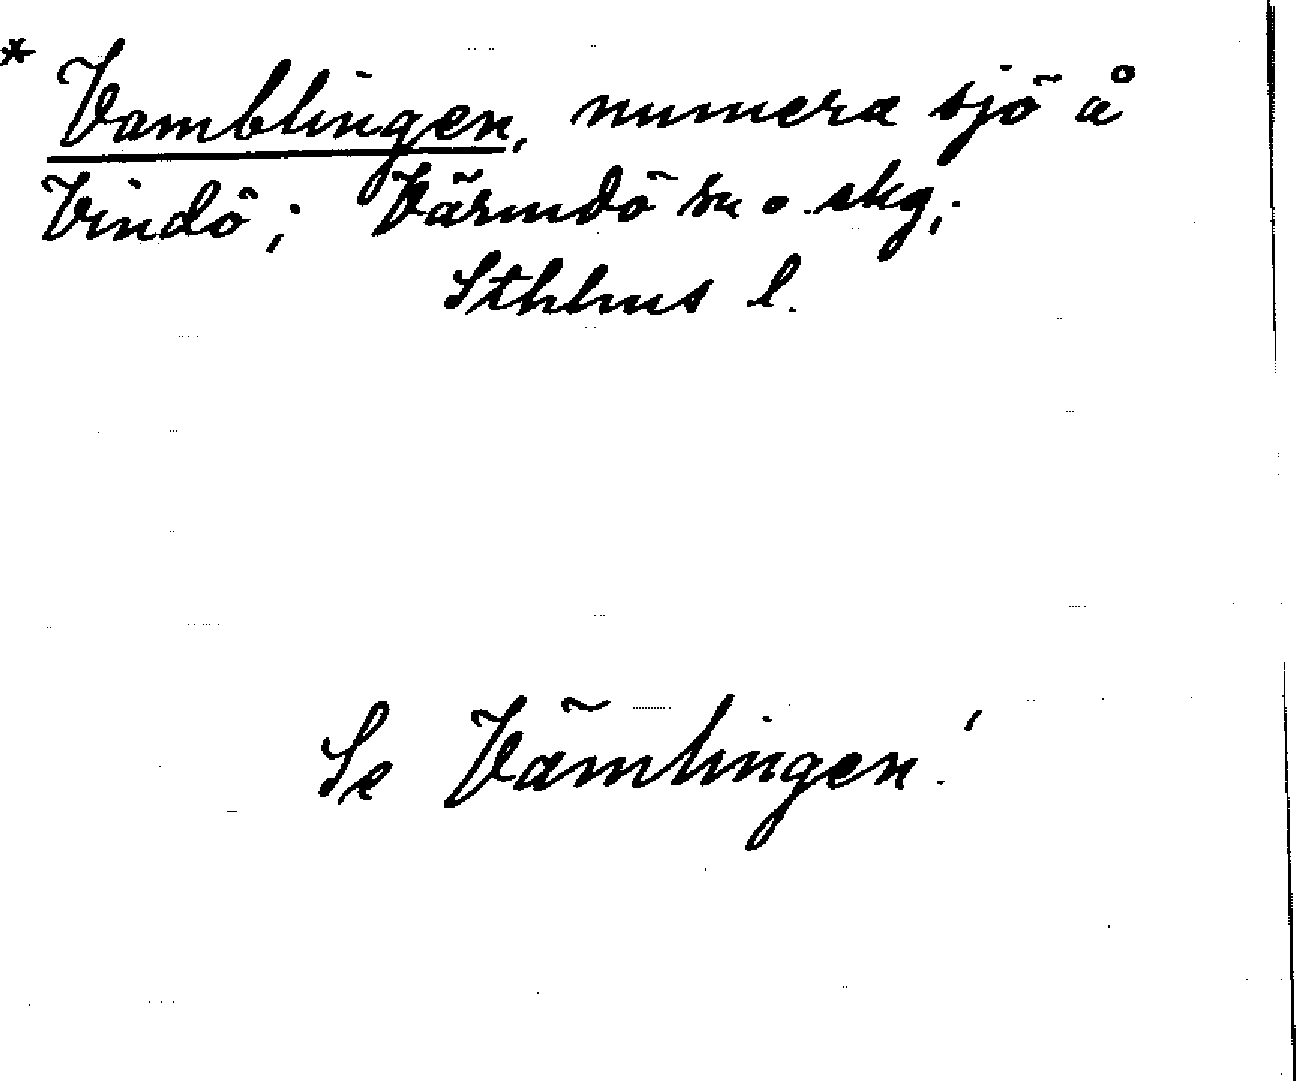 * Vamblingen, numera sjö å
Vindö; Värmdö sn o. skg,
Sthlms l.
Se Vämlingen!